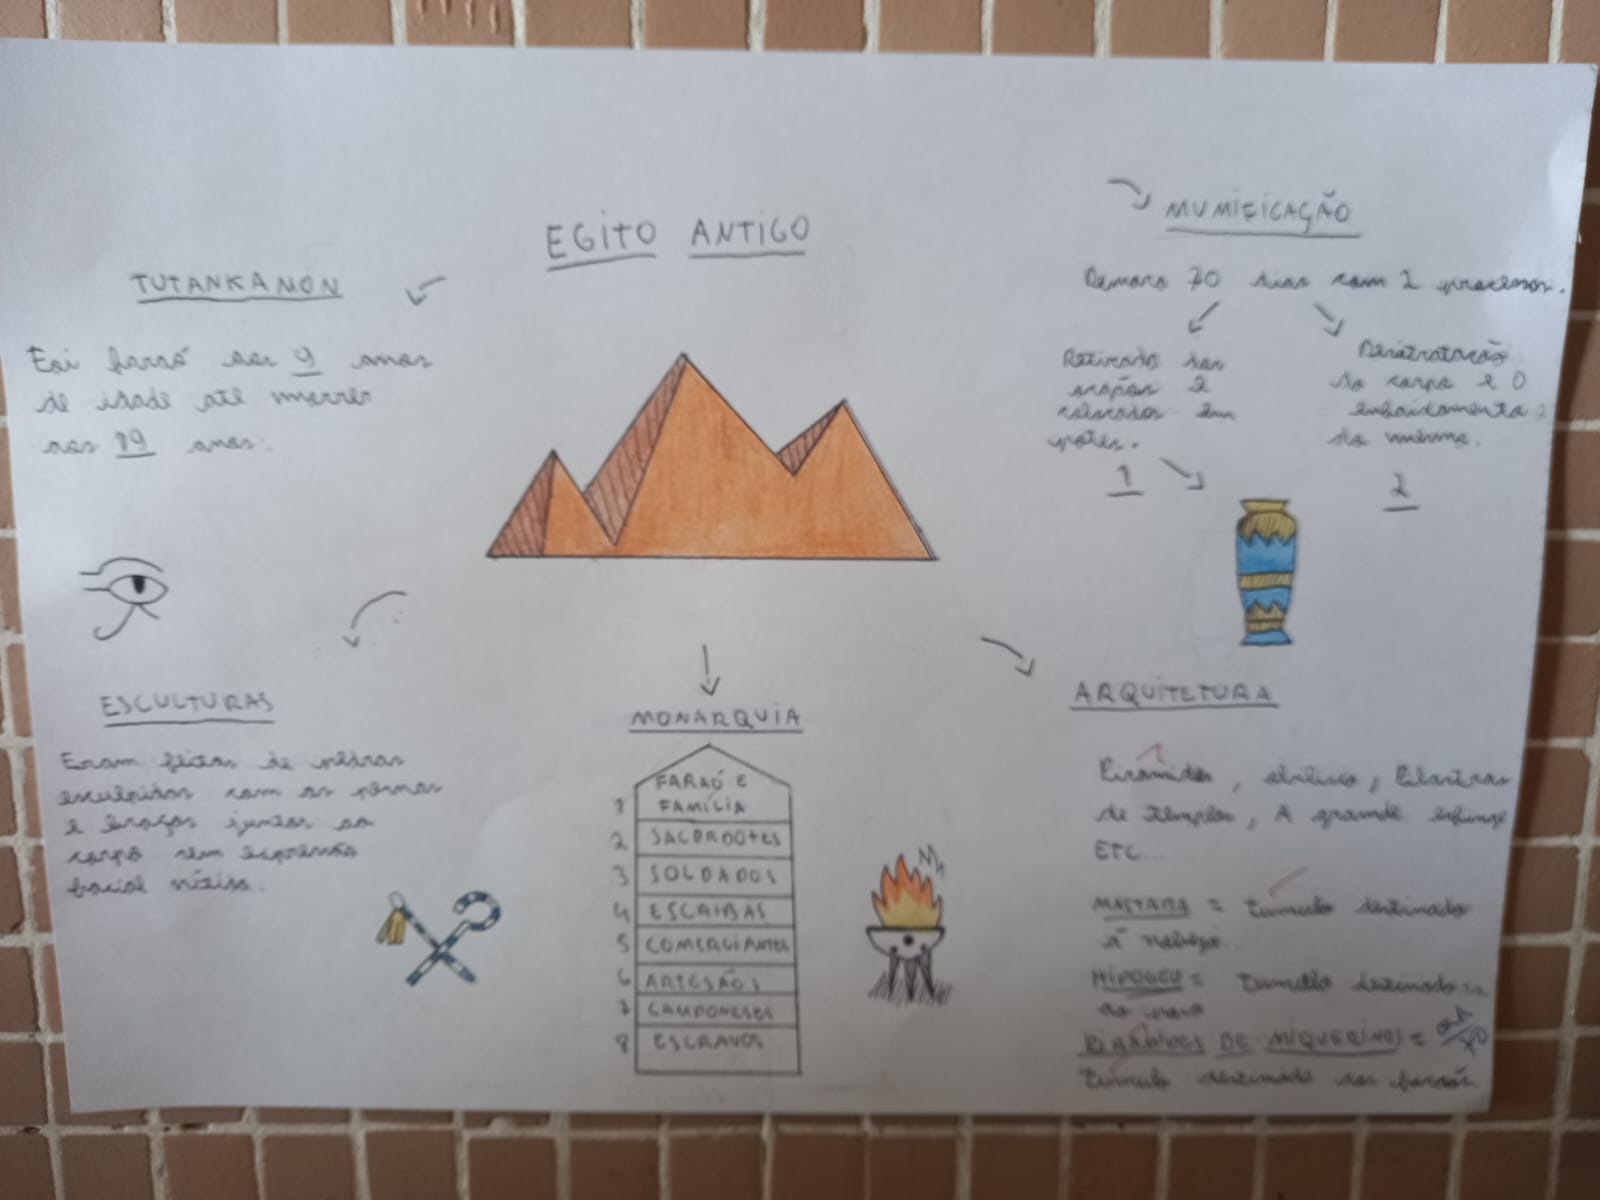 EGITO ANTIGO
TUTANKAMON
Foi faraó aos 9 anos
de idade até morrer
aos 19 anos.
MUMIFICAÇÃO
Demora 70 dias com 2 processos.
Retirada dos
orgãos e
colocados em
potes.
1
do corpo e o
da mesma.
2
ESCULTURAS
Eram feitas de pedras
esculpidas com as pernas
e braços juntos ao
corpo sem expressão
facial nítida.
MONARQUIA
FARAÓ E
1 FAMÍLIA
2 SACERDOTES
3 SOLDADOS
4 ESCRIBAS
5 COMERCIANTES
6 ARTESÃOS
7 CAMPONESES
8 ESCRAVOS
ARQUITETURA
Piramides, , Pilastras
de templos, A grande esfinge
ETC...
MASTABA = tumulo destinado
á nobreza.
HIPOGEU = tumulo destinado
ao povo
PIRÂMIDES DE MIQUERINOS =
tumulo destinado aos faraós.